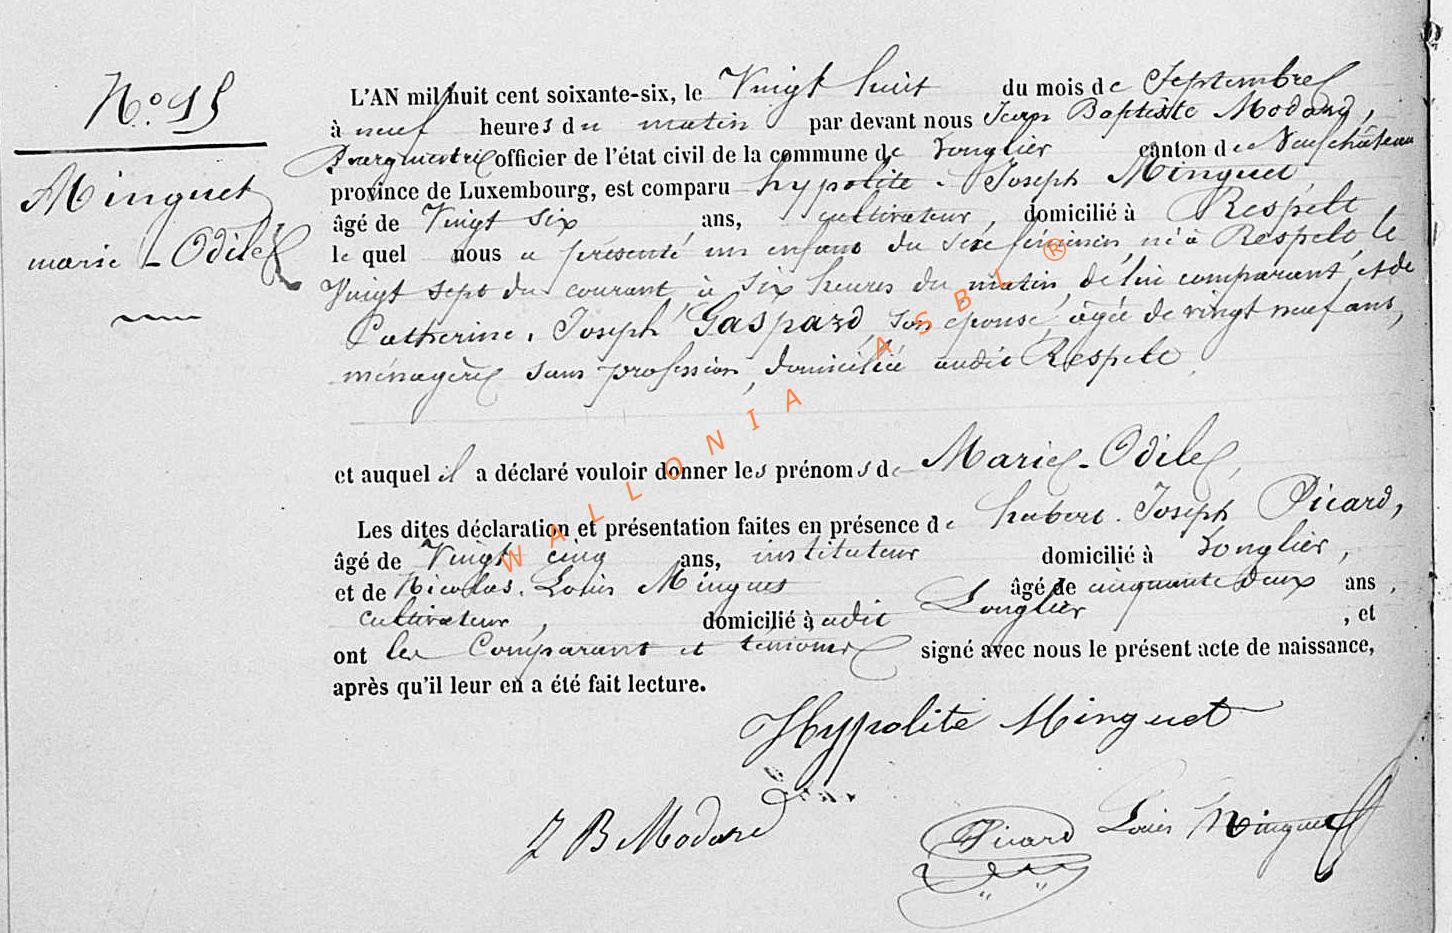 N.º 95
Minguet
marie - Odile
L'AN mil huit cent soixante-six, le Vingt huit du mois de Septembre
à neuf heures du matin par devant nous Jean Baptiste Modard,
Bourgmestre officier de l'état civil de la commune de Longlier canton de Neufchâteau
province de Luxembourg, est comparu hypolite - Joseph Minguet,
âgé de Vingt six ans, cultivateur, domicilié à Respelt
le quel nous a présenté un enfant du sexe féminin, né à Respelt, le
Vingt sept du courant, à six heures du matin, de lui comparant, et de
Catherine - Joseph Gaspard, son épouse, âgée de vingt neuf ans,
ménagère sans profession, domiciliée audit Respelt
et auquel il a déclaré vouloir donner les prénoms de Marie - Odile,
Les dites déclaration et présentation faites en présence de hubert - Joseph Picard,
âgé de Vingt cinq ans, instituteur domicilié à Longlier,
et de Nicolas - Louis Minguet âgé de cinquante deux ans,
cultivateur, domicilié à udit Longlier, et
ont les Comparant et témoins signé avec nous le présent acte de naissance,
après qu'il leur en a été fait lecture.
Hyppolite Minguet
J B Modard
Picard
Louis Minguet
WALLONIA ASBL ®